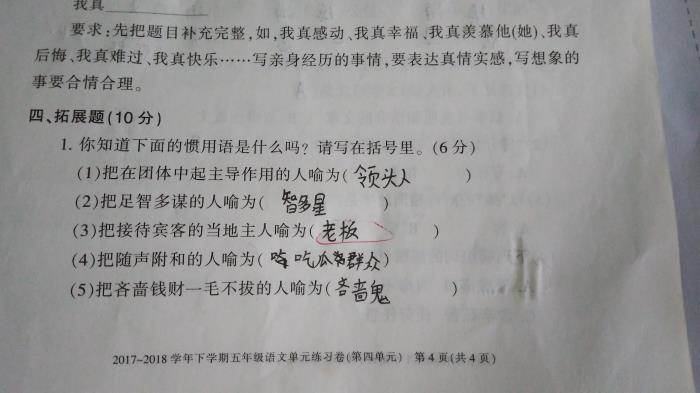 我真
要求:先把题目补充完整,如,我真感动、我真幸福、我真羡慕他(她)、我真
后悔、我真难过、我真快乐……写亲身经历的事情,要表达真情实感,写想象的
事要合情合理。
四、拓展题(10分)
1. 你知道下面的惯用语是什么吗？请写在括号里。(6分)
(1)把在团体中起主导作用的人喻为( 领头人 )
(2)把足智多谋的人喻为( 智多星 )
(3)把接待宾客的当地主人喻为( 老板 )
(4)把随声附和的人喻为( 吃瓜群众 )
(5)把吝啬钱财一毛不拔的人喻为( 吝啬鬼 )
2017-2018学年下学期五年级语文单元练习卷(第四单元) 第4页(共4页)